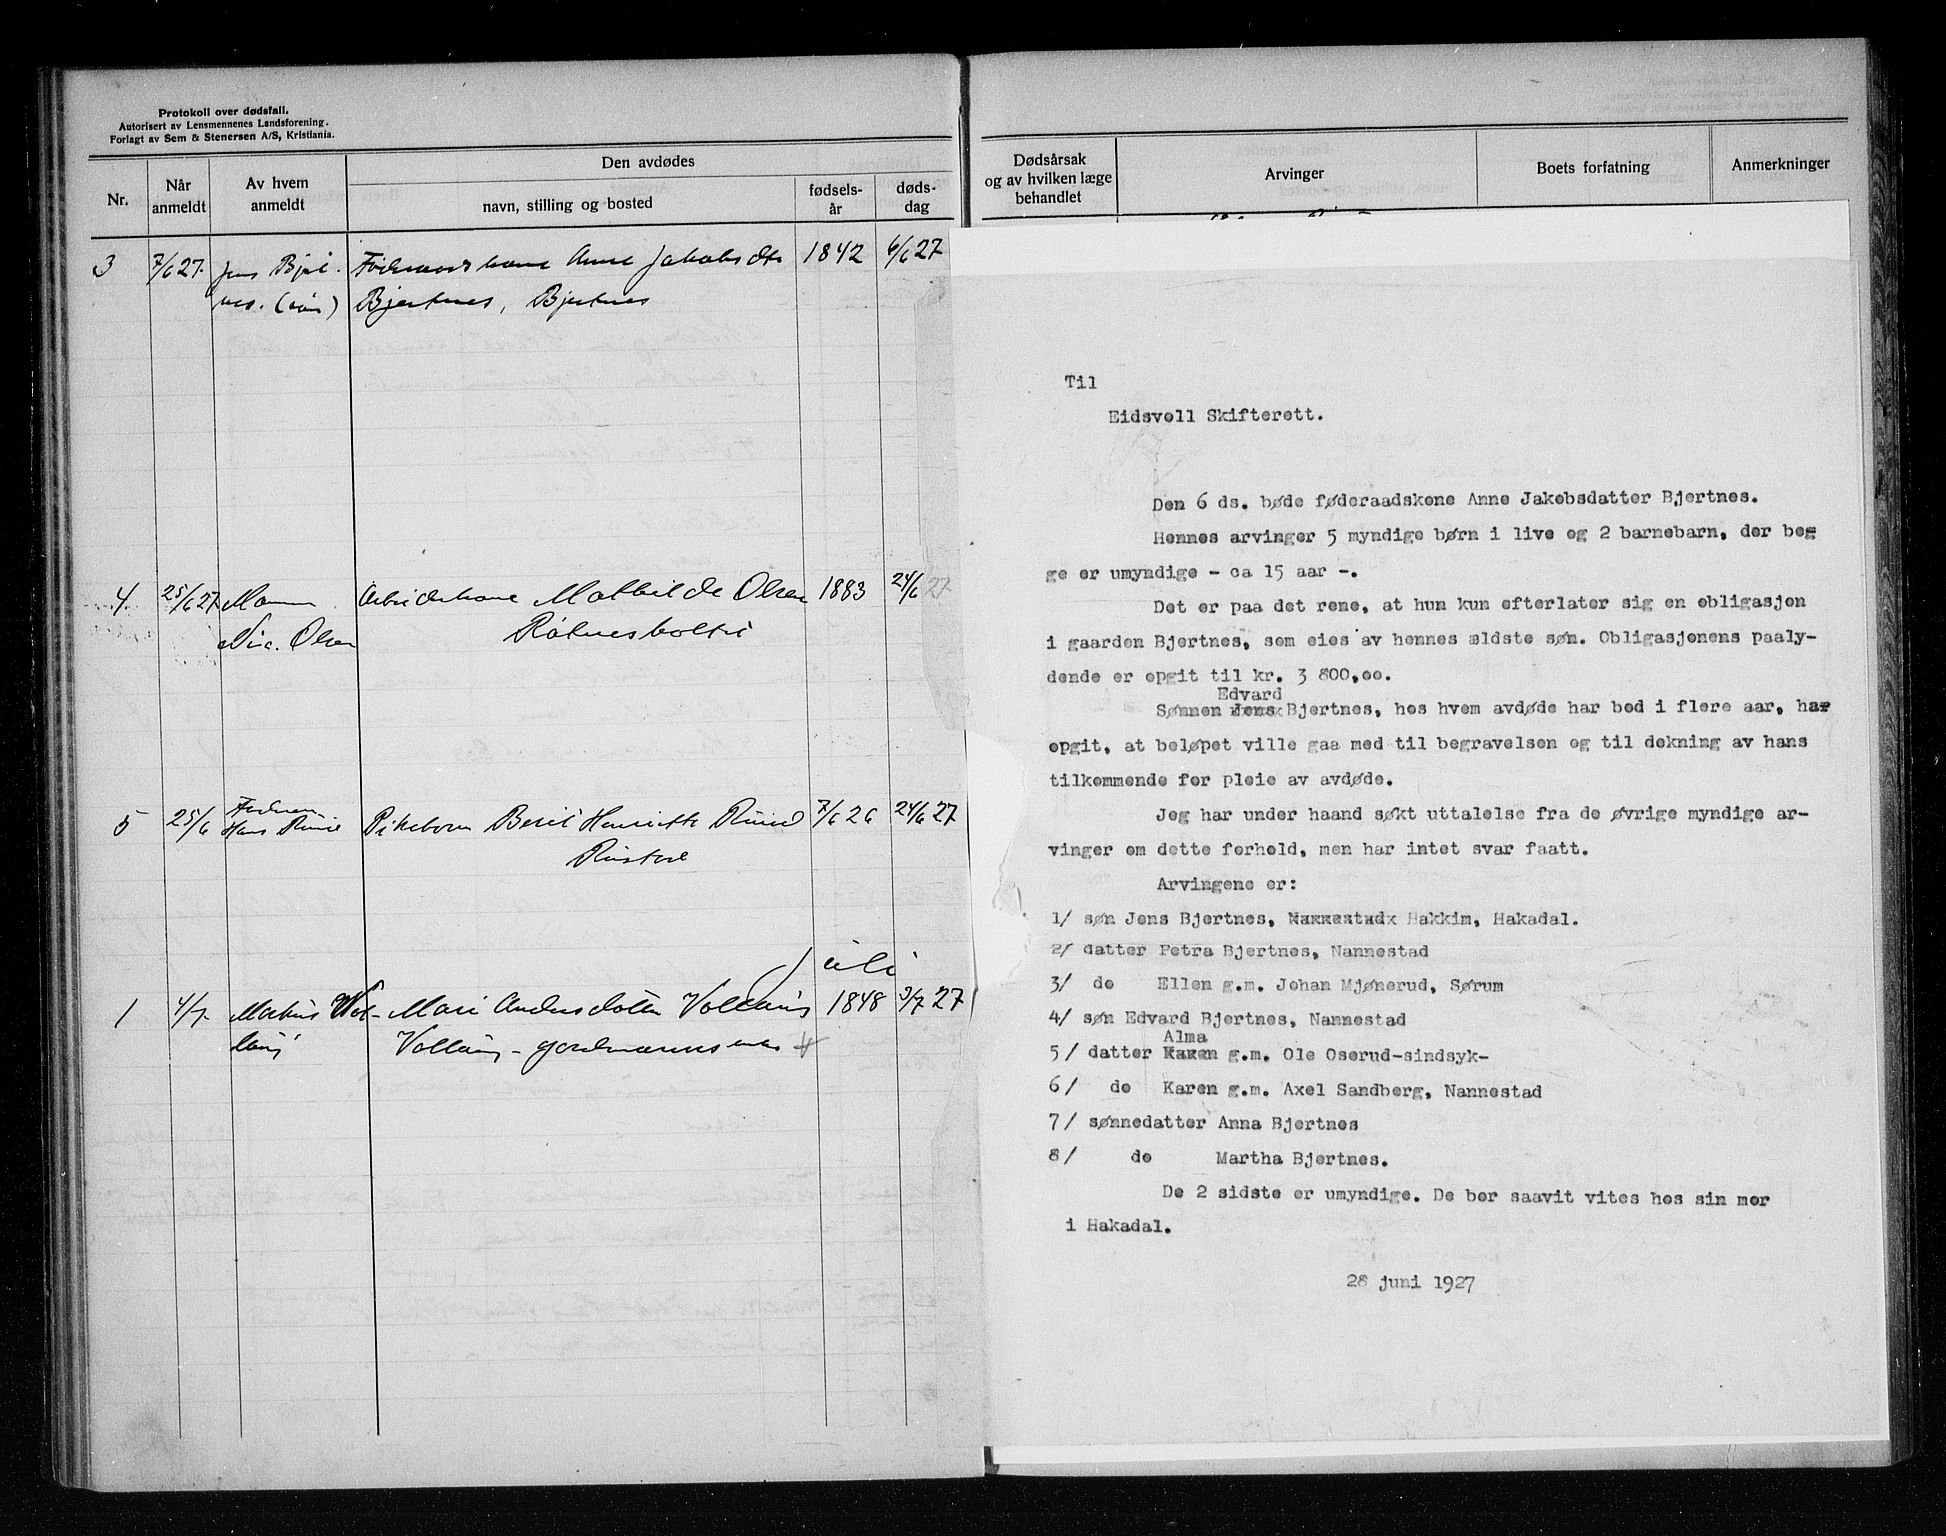 Protokoll over dødsfall.
Autorisert av Lensmennenes Landsforening.
Forlagt av Sem & Stenersen A/S, Kristiania.
Nr.
Når anmeldt
Av hvem anmeldt
Den avdødes
navn, stilling og bosted
fødsels-
år
døds-
dag
3 7/6 27. Jens Bjert- Føderaadskone Anne Jakobsdtr 1842 6/6 27
nes. (søn) Bjertnes, Bjertnes
4. 25/6 27 Mann Arbeiderkone Mathilde Olsen 1883 24/6 27
Nic. Olsen
5 25/6 Faderen Hans Ruud Pikebarn Berit Henriette Ruud 7/6 26 24/6 27
Juli
1 4/7. Mari Andersdatter 1848 3/7 27
Dødsårsak
og av hvilken læge
behandlet
Arvinger
Boets forfatning
Anmerkninger
Til
Eidsvoll Skifterett.
Den 6 ds. bøde føderaadskone Anne Jakobsdatter Bjertnes.
Hennes arvinger 5 myndige børn i live og 2 barnebarn, der beg
ge er umyndige - ca 15 aar -.
Det er paa det rene, at hun kun efterlater sig en obligasjon
i gaarden Bjertnes, som eies av hennes ældste søn. Obligasjonens paaly-
dende er opgit til kr. 3 800,oo.
Edvard
Sønnen Jens Bjertnes, hos hvem avdøde har bod i flere aar, har
opgit, at beløpet ville gaa med til begravelsen og til dekning av hans
tilkommende for pleie av avdøde.
Jeg har under haand søkt uttalelse fra de øvrige myndige ar-
vinger om dette forhold, men har intet svar faatt.
Arvingene er:
1/ søn Jens Bjertnes, Nannestadx Hakkim, Hakadal.
2/ datter Petra Bjertnes, Nannestad
3/ do Ellen g.m. Johan Mjønerud, Sørum
4/ søn Edvard Bjertnes, Nannestad
Alma
5/ datter Karen g.m. Ole Oserud-sindsyk-
6/ do Karen g.m. Axel Sandberg, Nannestad
7/ sønnedatter Anna Bjertnes
8/ do Martha Bjertnes.
De 2 sidste er umyndige. De bor saavit vites hos sin mor
i Hakadal.
28 juni 1927